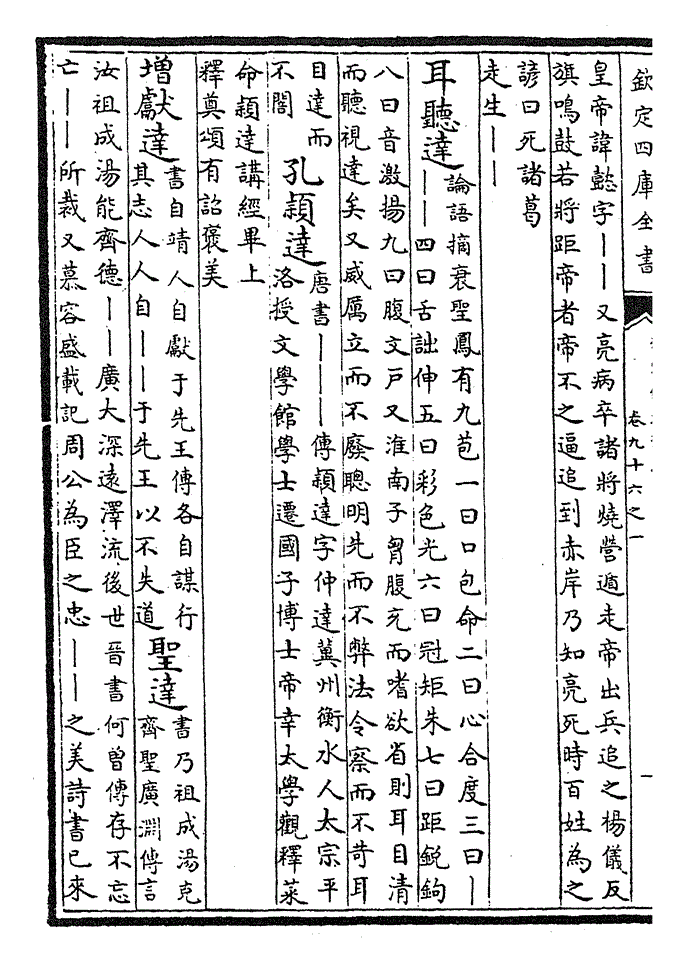 欽定四庫全書
卷九十六之一
一
皇帝諱懿字——又亮病卒諸將燒營遁走帝出兵追之楊儀反
旗鳴鼓若將距帝者帝不之逼追到赤岸乃知亮死時百姓為之
諺曰死諸葛
走生——
耳聽達
論語摘衰聖鳳有九苞一曰口包命二曰心合度三曰—
——四曰舌詘伸五曰彩色光六曰冠矩朱七曰距銳鉤
八曰音激揚九曰腹文戸又淮南子胷腹充而嗜欲省則耳目清
而聽視達矣又威厲立而不廢聰明先而不弊法令察而不苛耳
目達而
不闇
孔頴達
唐書———傳頴達字仲達冀州衡水人太宗平
洛授文學館學士遷國子博士帝幸太學觀釋菜
命頴達講經畢上
釋奠頌有詔褒美
增獻達
書自靖人自獻于先王傳各自謀行
其志人人自——于先王以不失道
聖達
書乃祖成湯克
齊聖廣淵傳言
汝祖成湯能齊德——廣大深遠澤流後世晉書何曽傳存不忘
亡——所裁又慕容盛載記周公為臣之忠——之美詩書已來